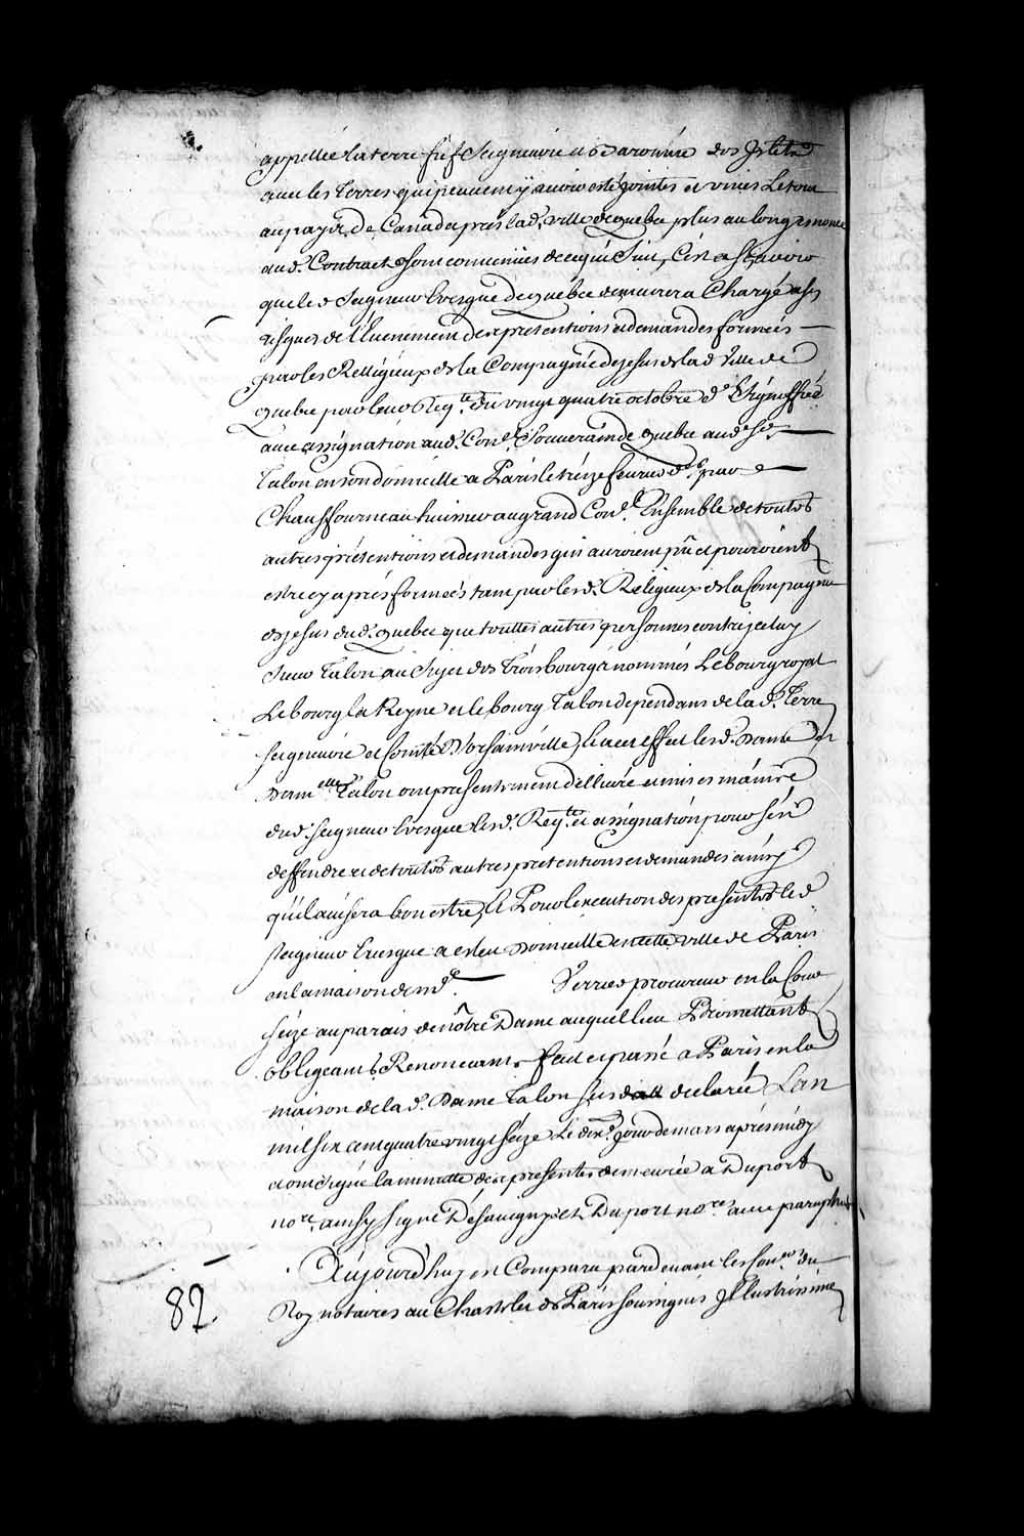 appellée la terre fief Seigneurie et Baronnie des Islets
avec les Terres qui peuvent y avoir esté jointes et unies Le tout
au payis de Canada prés lad. ville de quebec plus au long
aud. Contract et sont convenues de ce qui Suit, C'est a Sçavoir
que led Seigneur Evesque de quebec demeurera Chargé a ses
risques de l'Evenement des pretentions et demandes formées
par les Relligieux de la Compagnie de jesus de lad Ville de
quebec par leur Reqte. du vingt quatre octobre
avec assignation aud. Conel. Souverain de quebec aud. Sr.
Talon en son domicille a Paris le treize feurier par
Chauffourneau huissier au grand Conel. Ensemble de toutes
autres prétentions et demandes qui auroient pû et pouroient
estre cy aprés formées tant par lesd. Religieux de la Compagnie
de jesus dud. quebec que touttes autres personnes contre jceluy
Sieur Talon au Sujet des trois bourgs nommés Le bourg royal
Le bourg la Reyne et le bourg Talon dependans de lad. Terre
seigneurie et Comté D'orsainville, et a cet effet lesd. Dame et
Damelle. Talon ont presentement dellivré et mis es mains
dud. seigneur Evesque lesd. Reqte. et assignation pour s'en
deffendre et de toutes autres pretentions et demandes ainsy
qu'il avisera bon estre, Et Pour l'execution des presentes led
seigneur Evesque a esleu Domicille en cette ville de Paris
en la maison de me. Verrier procureur en la Cour
size au parvis de nôtre Dame auquel lieu Promettant
obligeant Renonceant. fait et passé a Paris en la
maison de lad. Dame Talon sus declarée Lan
mil six cent quatre vingt seize Le dixe. jour de mars aprés midy
et ont signé la minutte des presentes demeurée a Duport
nore. ainsy signé De Savigny et Duport nores avec paraphes
Aujourd'huy est Comparu pardevant les Coners du
Roy notaires au Chastelet de Paris soussignés jllustrissime
82